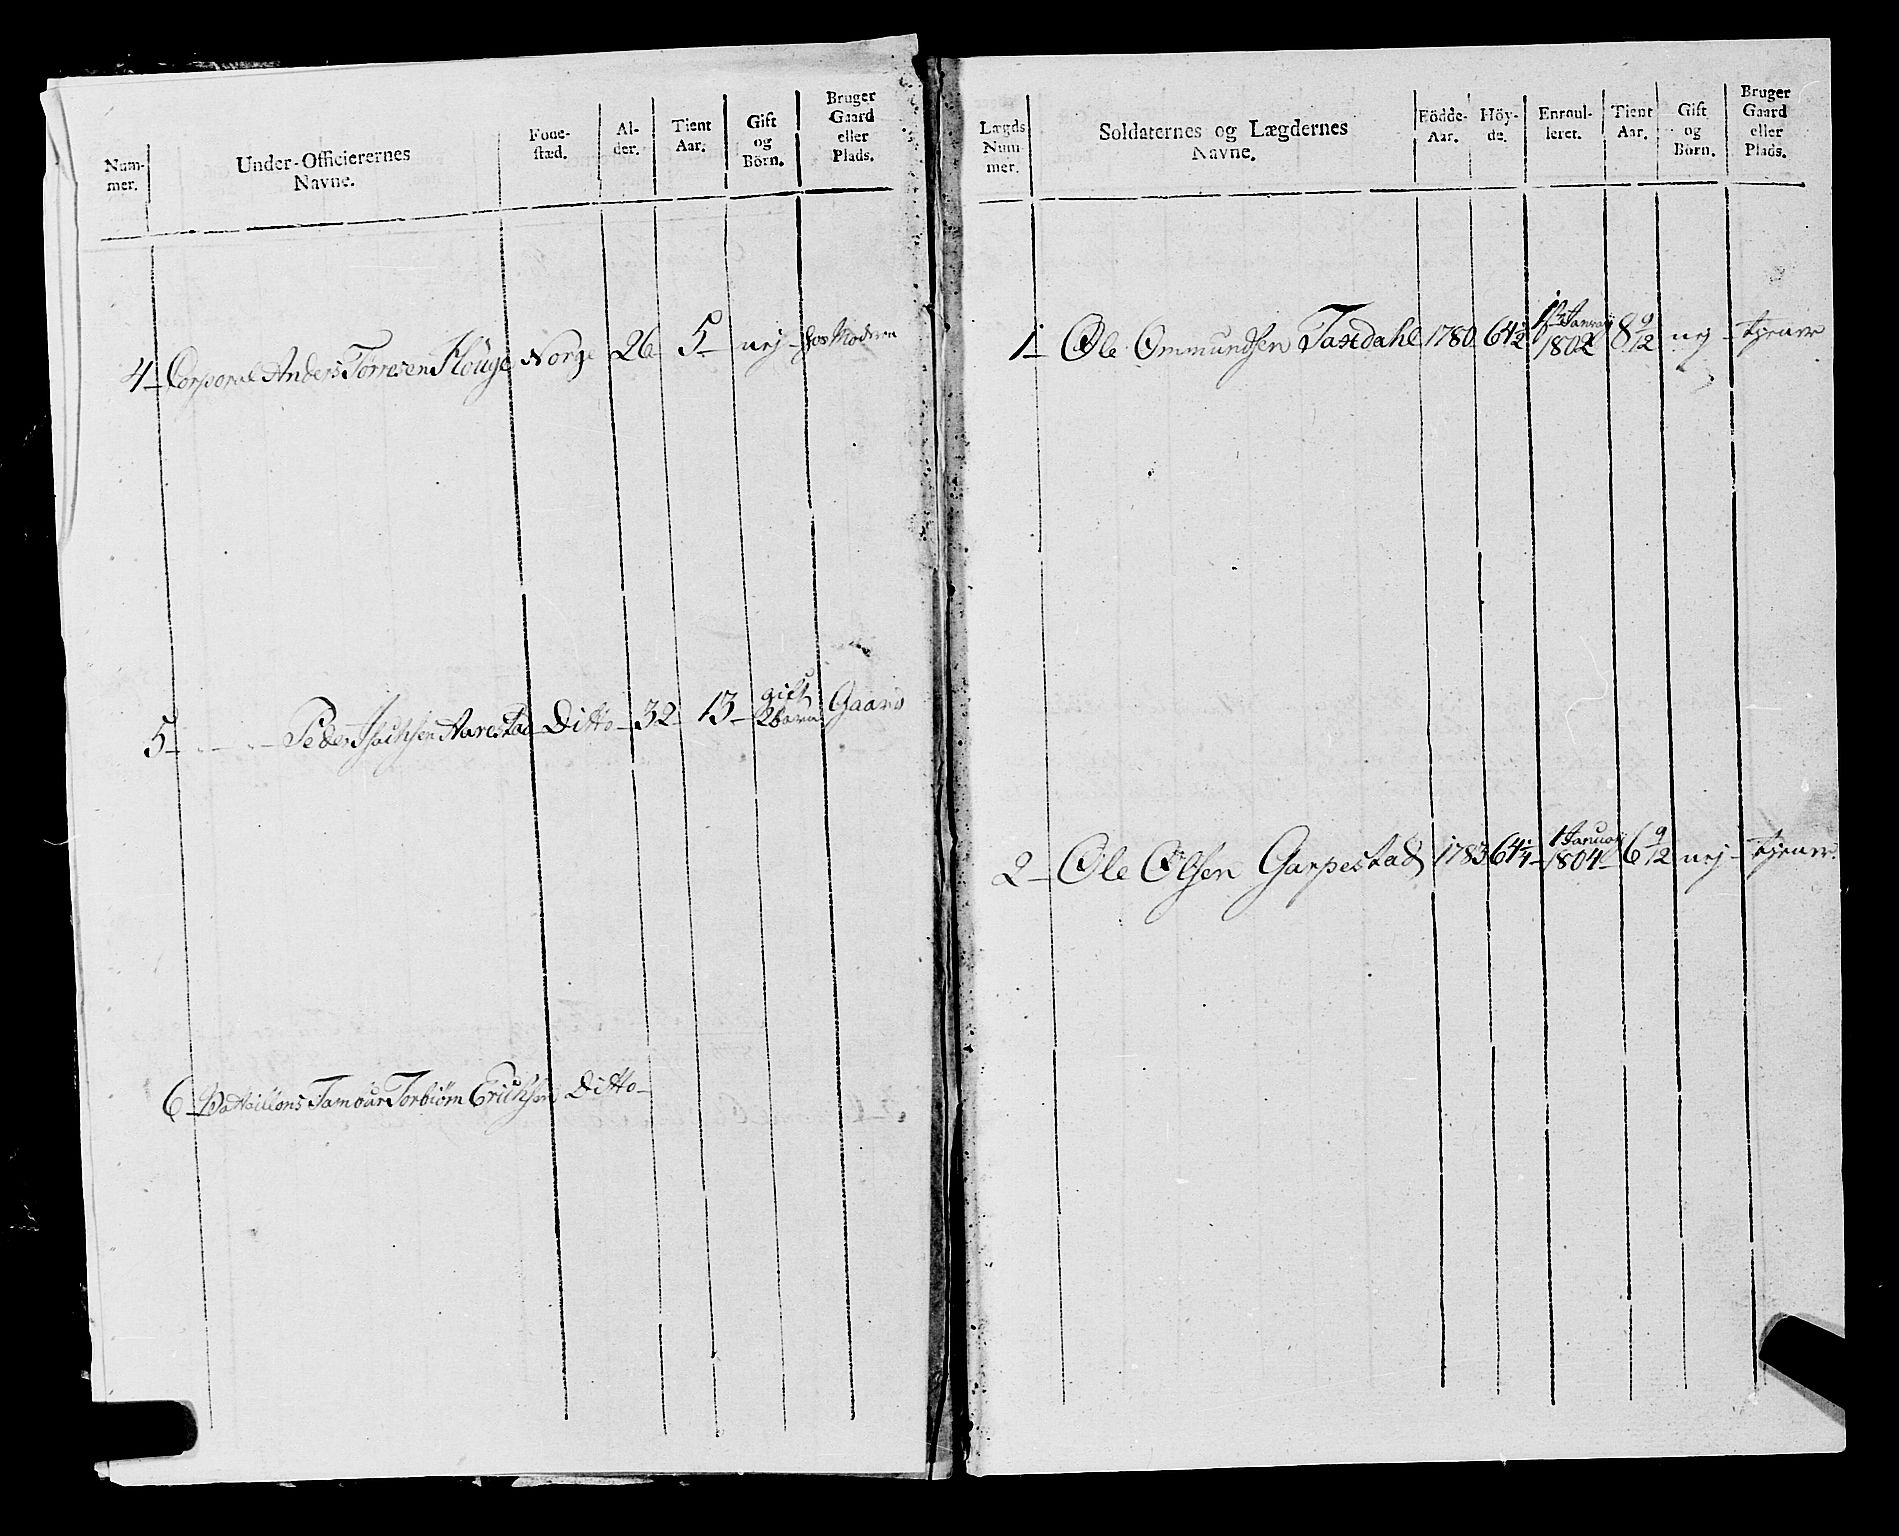 Num-
mer.
Under-Officierernes
Navne.
Föde-
stæd.
Al-
der.
Tient
Aar.
Gift
og
Börn.
Bruger
Gaard
eller
Plads.
4 Corporal Anders Torresen Houge Norge 26 5 nej hos Moderen
5 Peder Isachsen Aarestad Ditto 32 13 gift 2 barn Gaard
6 Battaillons Tambur Torbiörn Erichsen Ditto
Lægds
Num-
mer.
Soldaternes og Lægdernes
Navne.
Födde-
Aar.
Höy-
de.
Enroul-
leret.
Tient
Aar.
Gift
og
Börn.
Bruger
Gaard
eller
Plads.
1 Ole Ommundsen Taxdahl 1780 64½ Januarij 1802 8 9/12 nej tjener
2 Ole Olsen Garpestad 1783 64¼ 1 Januarij 1804 6 9/12 nej tjener